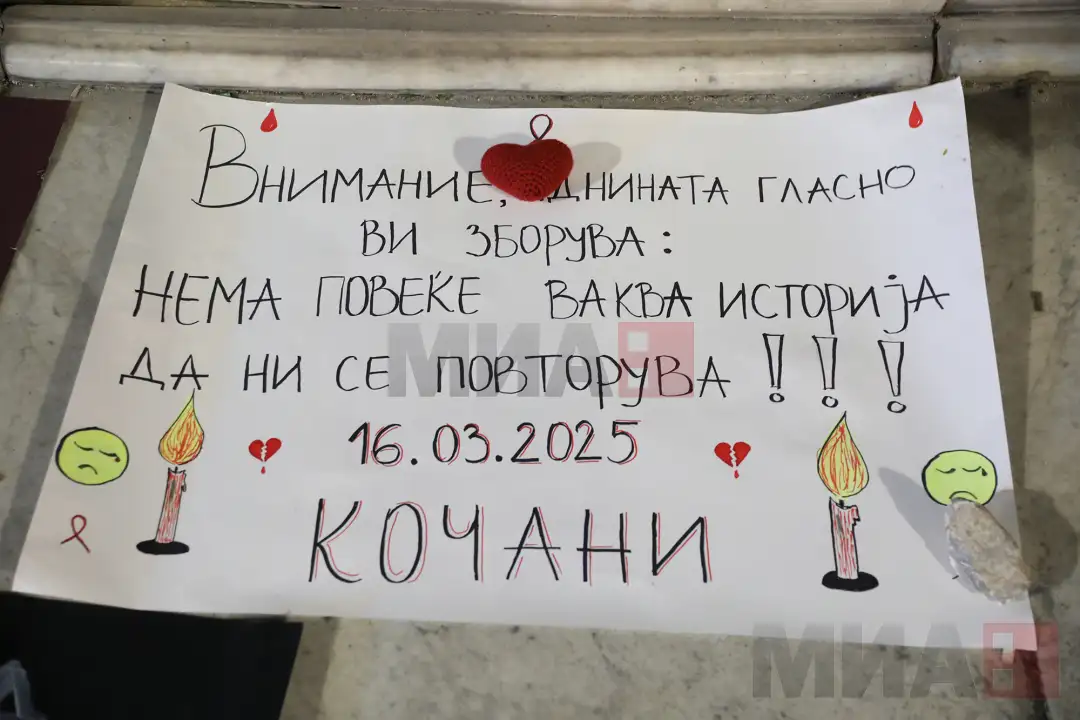 ВНИМАНИЕ, ДНИНАТА ГЛАСНО
ВИ ЗБОРУВА:
НЕМА ПОВЕЌЕ ВАКВА ИСТОРИЈА
ДА НИ СЕ ПОВТОРУВА !!!
МИА
16.03.2025
КОЧАНИ
МИА